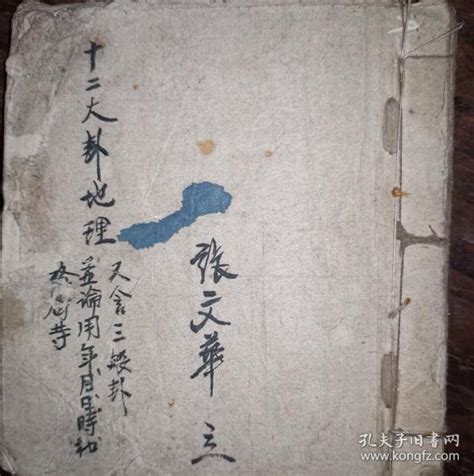 張文華 立
十二大卦地理
又含三般卦
並論用年月日時
孔夫子旧书网
www.kongfz.com